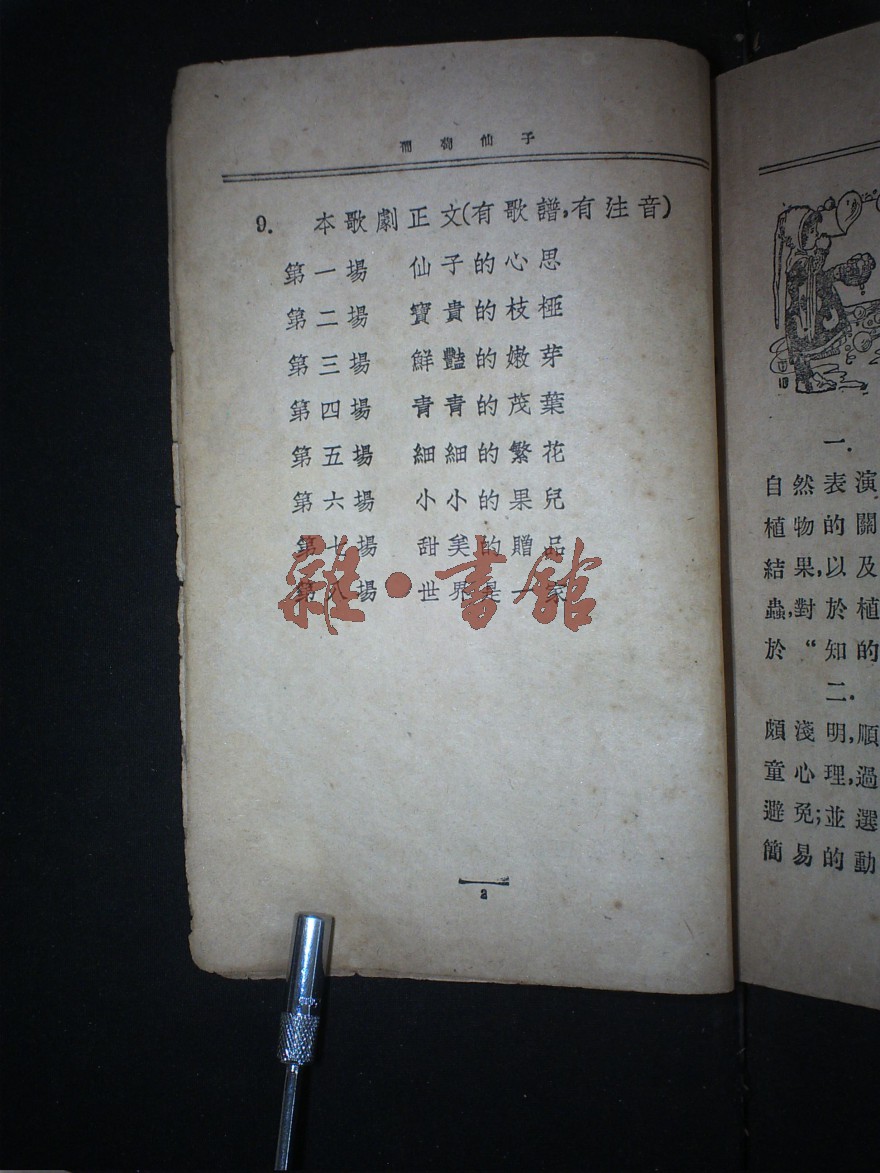 葡萄仙子
9. 本歌劇正文(有歌譜,有注音)
第一場 仙子的心思
第二場 寶貴的枝椏
第三場 鮮豔的嫩芽
第四場 青青的茂葉
第五場 細細的繁花
第六場 小小的果兒
第七場 甜美的贈品
第八場 世界是一家
雜·書館
2
一.
自然表演
植物的關
結果,以及
蟲,對於植
於“知的
二.
頗淺明,順
童心理,過
避免;並選
簡易的動